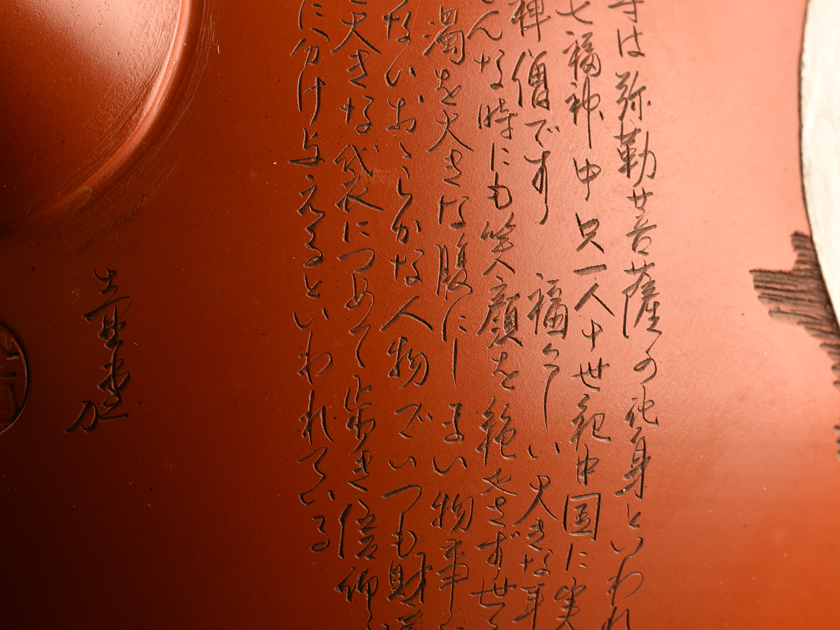 は弥勒菩薩の化身といわれ
七福神中只一人十世紀中国に実
禅僧です 福々しい大きな耳
んな時にも笑顔を絶やさず世
濁を大きな腹にしまい物事
ないおゝらかな人物でいつも財
大きな袋につめて歩き信仰
に分け与えるといわれている